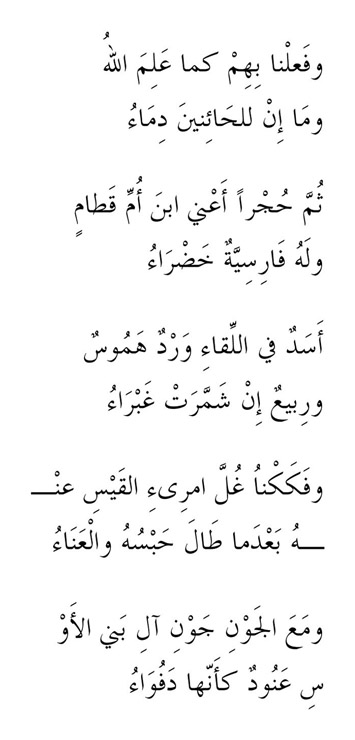 وفَعلْنا بِهِمْ كما عَلِمَ اللهُ
ومَا إِنْ للحَائِنينَ دِمَاءُ
ثُمَّ حُجْراً أَعْني ابنَ أُمِّ قَطامٍ
ولَهُ فَارِسِيَّةٌ خَضْرَاءُ
أَسَدٌ في اللِّقاءِ وَرْدٌ هَمُوسٌ
ورِبيعٌ إِنْ شَمَّرَتْ غَبْرَاءُ
وفَكَكْناُ غُلَّ امرِىءِ القَيْسِ عنْـــ
ـــهُ بَعْدَما طَالَ حَبْسُهُ والْعَنَاءُ
ومَعَ الجَوْنِ جَوْنِ آلِ بَني الأَوْ
سِ عَنُودٌ كأَنّها دَفُوَاءُ